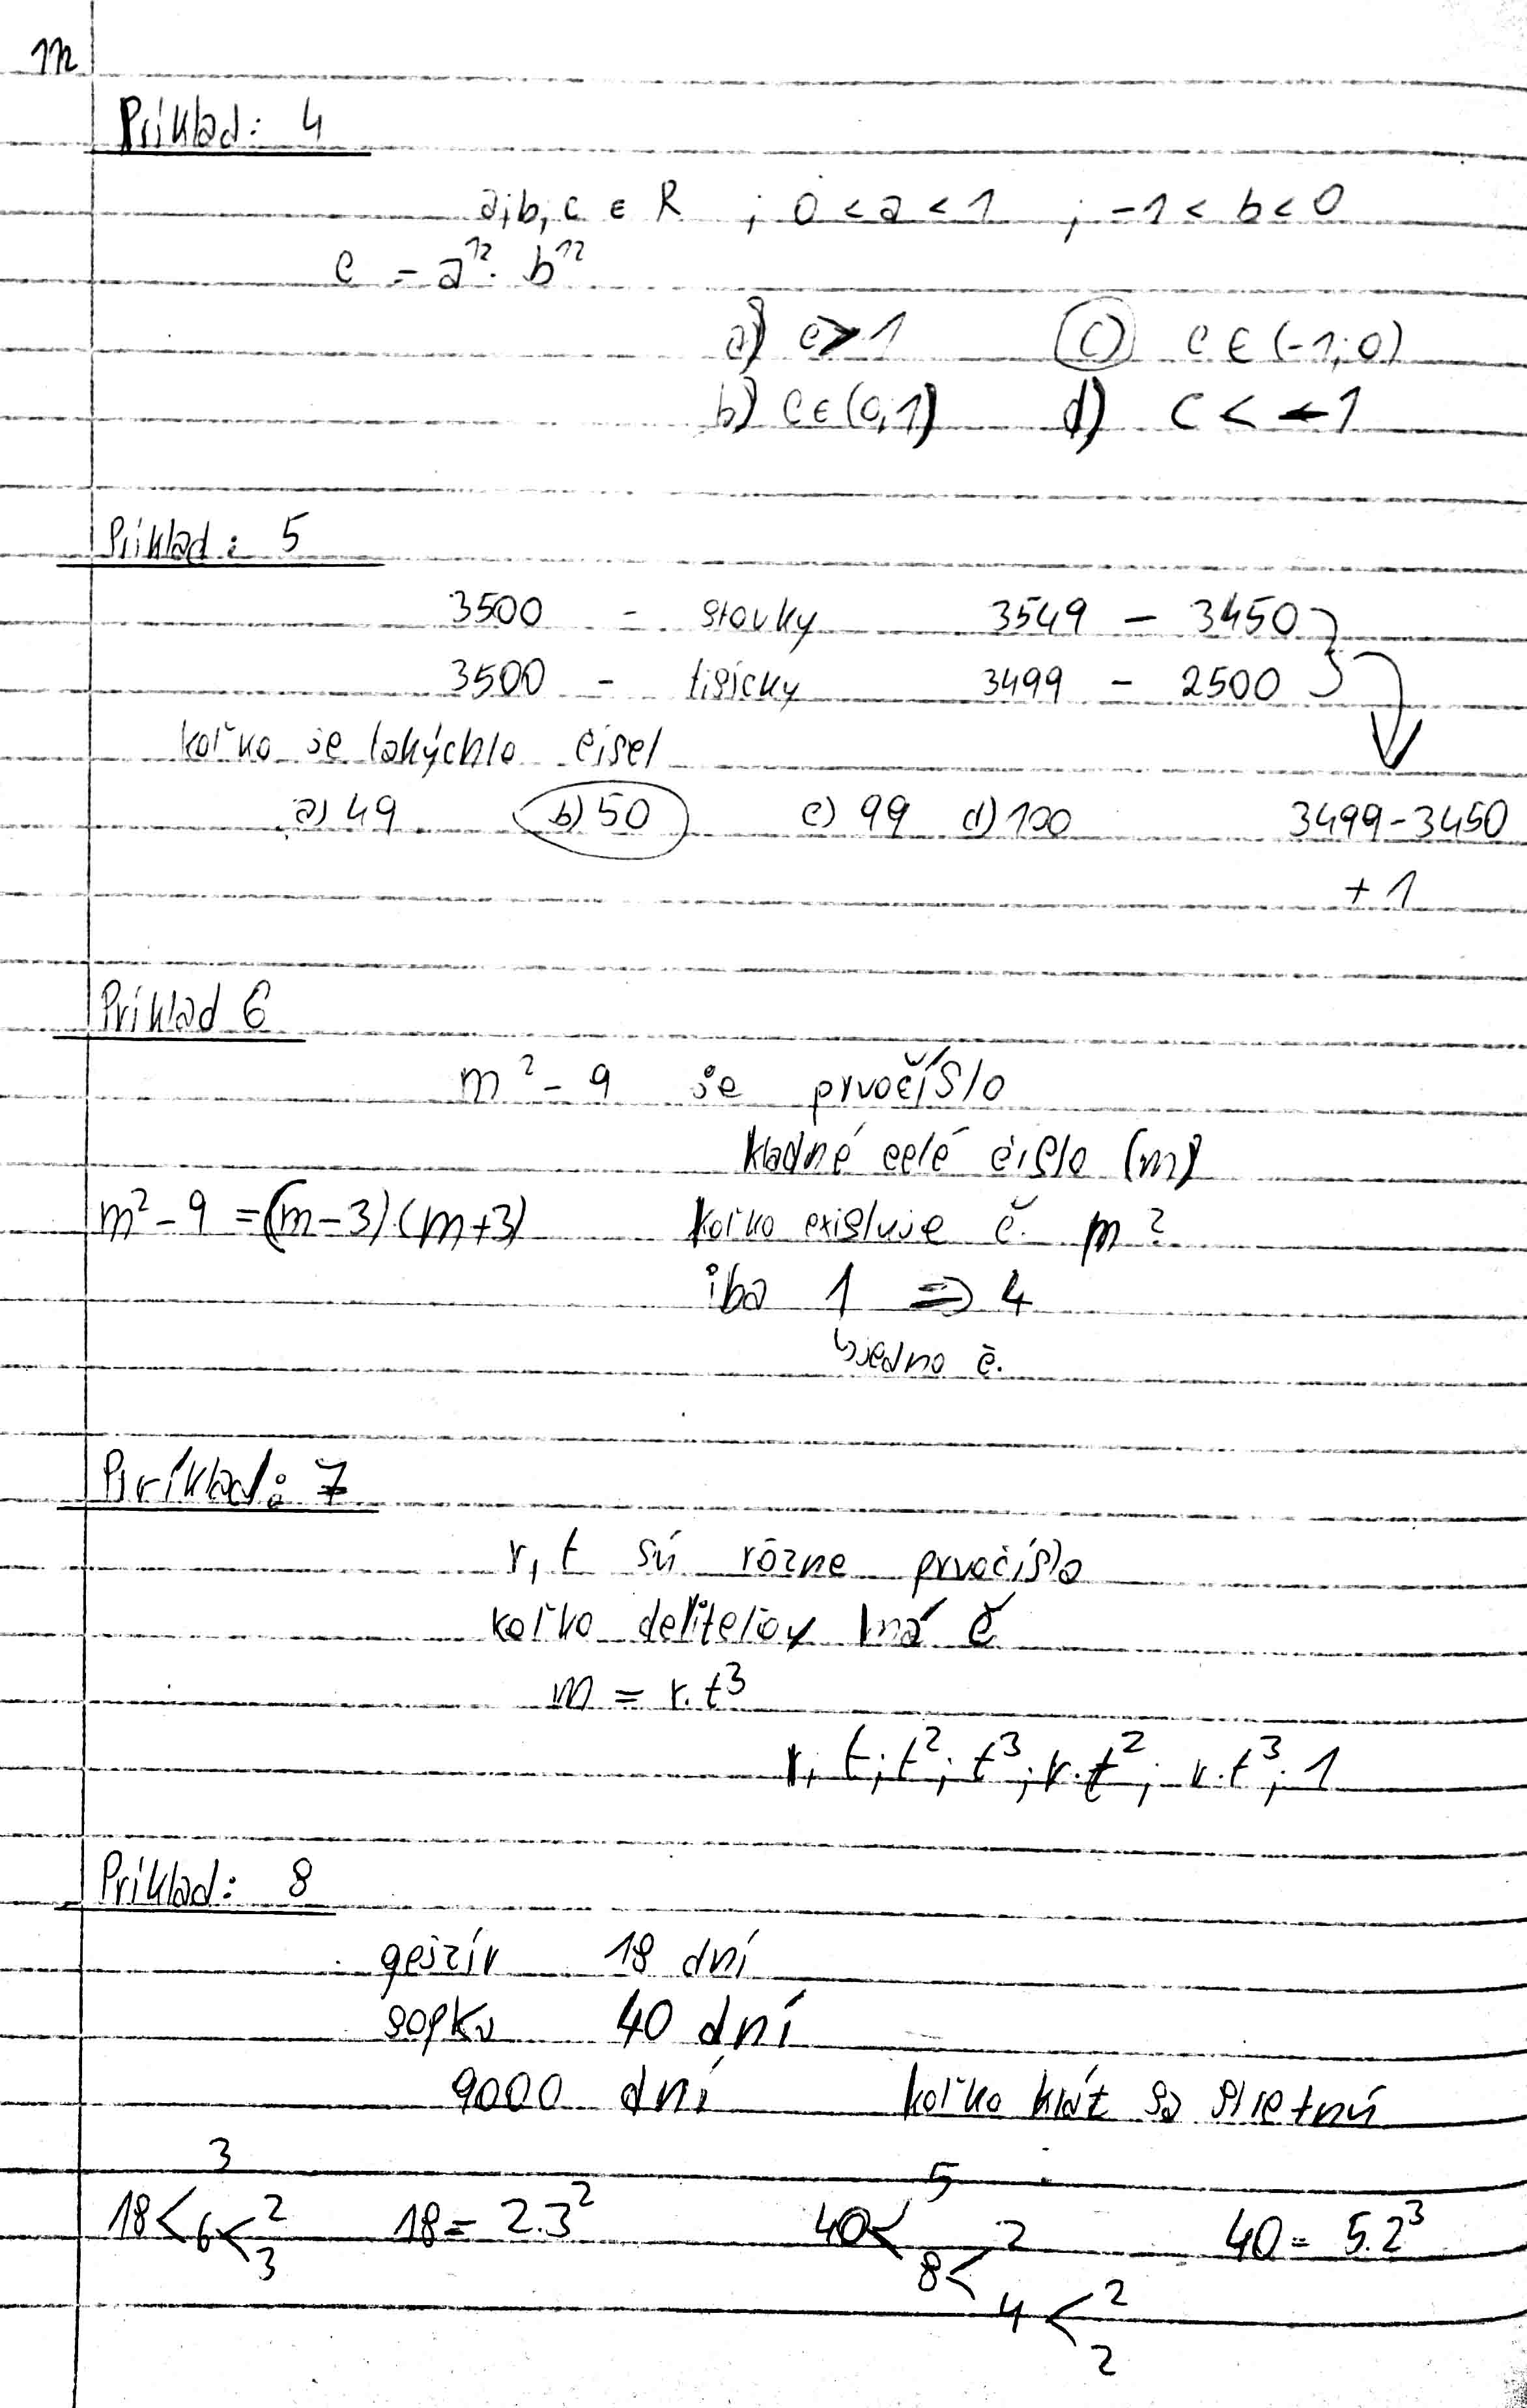 m
Príklad: 4
a, b, c ∈ R ; 0 < a < 1 ; -1 < b < 0
c = a¹² · b¹²
a) c > 1 c) c ∈ (-1; 0)
b) c ∈ (0, 1) d) c < -1
Príklad: 5
3500 - stovky 3549 - 3450
3500 - tisícky 3499 - 2500
koľko je takýchto čísel
a) 49 b) 50 c) 99 d) 100 3499 - 3450
+ 1
Príklad 6
m² - 9 je prvočíslo
kladné celé číslo (m)
m² - 9 = (m - 3) · (m + 3) koľko existuje č. m ?
iba 1 ⇒ 4
↳ jedno č.
Príklad: 7
r, t sú rôzne prvočísla
koľko deliteľov má č
m = r. t³
r, t; t²; t³; r. t²; r. t³; 1
Príklad: 8
gejzír 18 dní
sopka 40 dní
9000 dní koľko krát sa stretnú
3 5
18 < 6 < 2 18 = 2.3² 40 < 2 40 = 5.2³
3 8 <
4 < 2
2